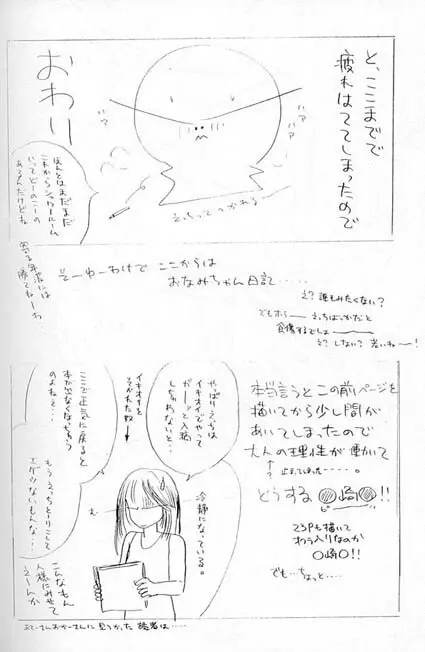 と、ここまでで
疲れはててしまったので
おわり
ハァ
ハァ
ハァ
えっちってつかれる
ほんとはまだまだ
これからシャワールーム
いってどーのこーの
あるんだけどね
寄る年波には
勝てねーわ
そーゆーわけで ここからは
おなみちゃん日記・・・・・
え?誰もみたくない?
でもホラ えっちばっかだと
食傷するでしょ
え?しない? 若いね〜!
本当言うとこの前ページを
描いてから少し間が
あいてしまったので
大人の理性が働いて
↑
?
止まってしまった・・・・。
どうする●崎●!!
ピー
23Pも描いて
おわりなのか
〇崎〇!!
でも…ちょっと……
やっぱりえっちは
イキオイでやって
ガーッと入稿
しちゃわないと…
イキオイを
そがれた奴
↓
ここで正気に戻ると
本が出なくなっちゃう
のよねぇ…
む
冷静になっている。
もうえっちとりこして
エゲツないもんな…
こんなもん
人様にみせて
えーんか
おとーさんおかーさんに見つかった読者は……